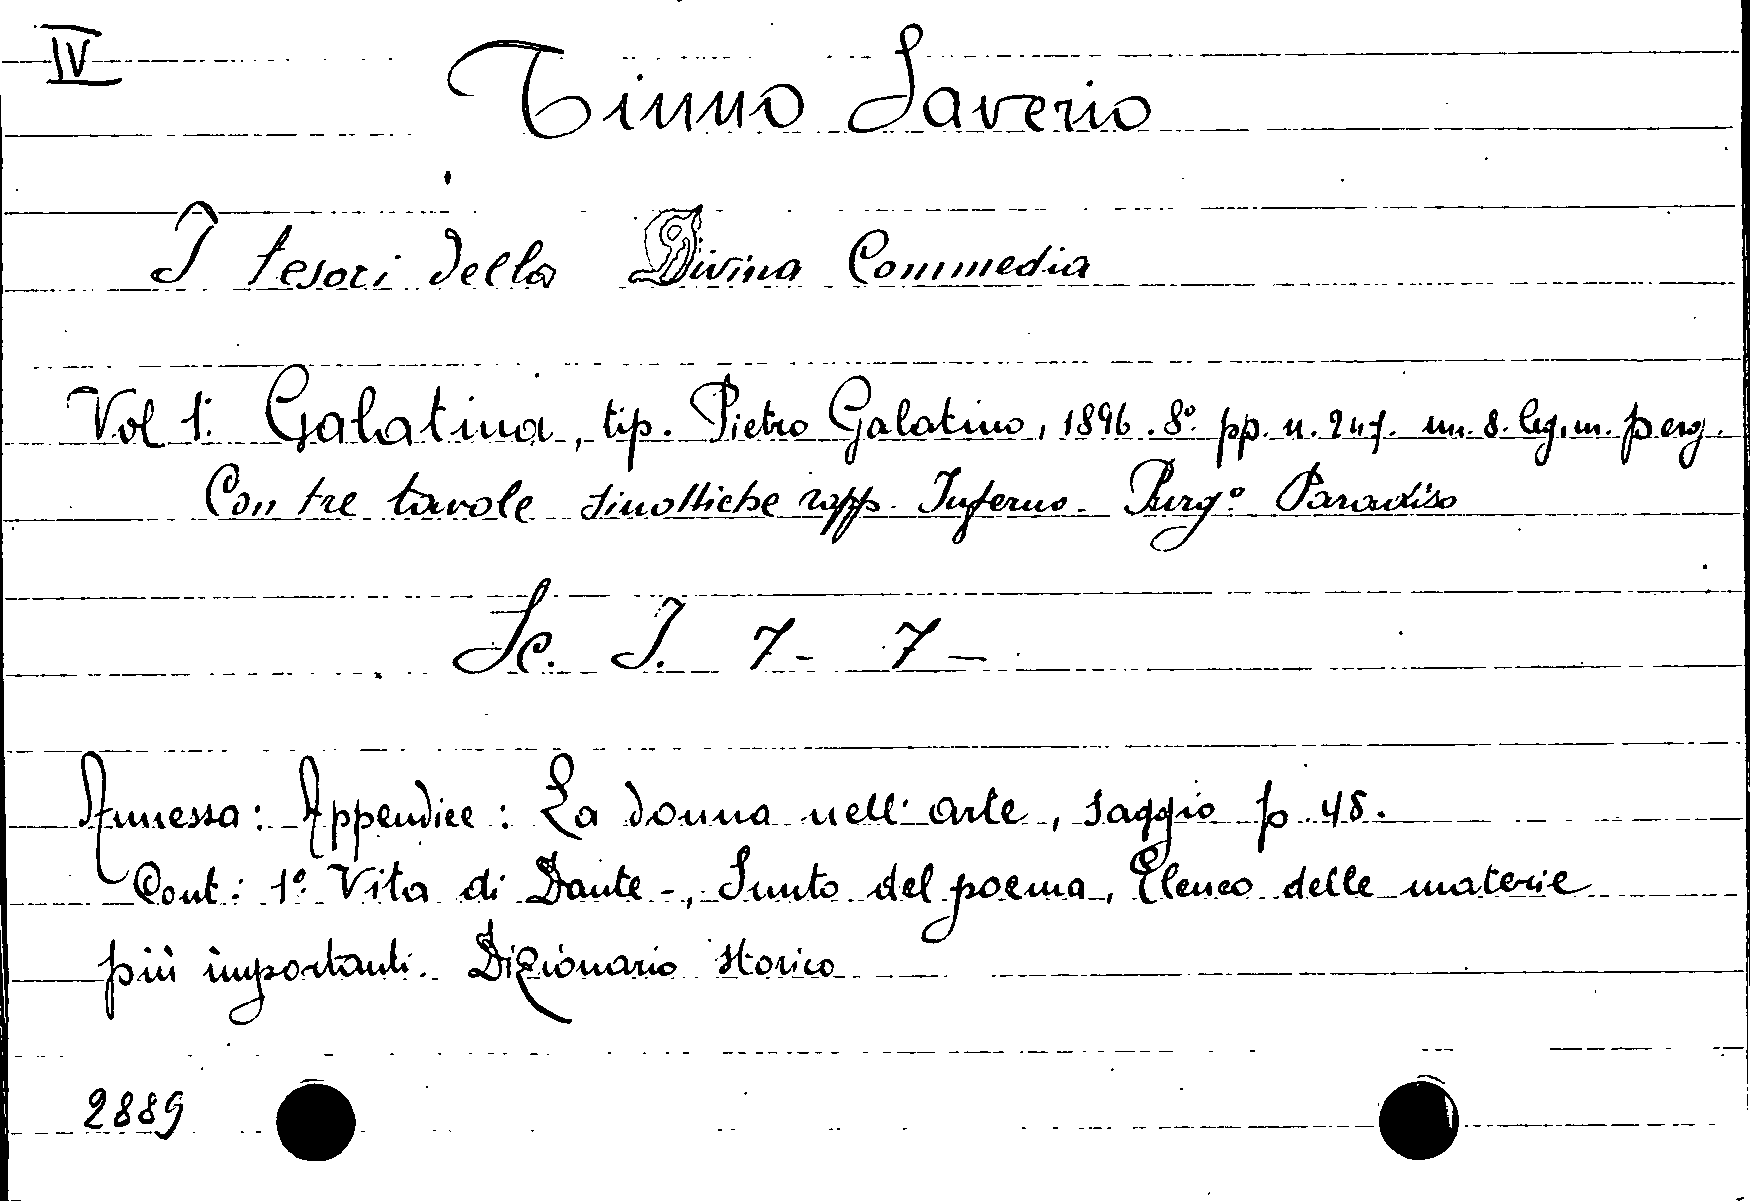 IV
Tinno Saverio
I tesori della Divina Commedia
Vol 1.° Galatina, tip. Pietro Galatino, 1896. 8.° pp. n. 247. nn. 8. leg. m. perg.
Con tre tavole sinottiche rapp. Inferno. Purg.° Paradiso
Sc. I. 7 - 7 -
Annessa: Appendice: La donna nell'arte, saggio p. 48.
Cont: 1.° Vita di Dante -, Sunto del poema, Elenco delle materie
più importanti. Dizionario storico
2889